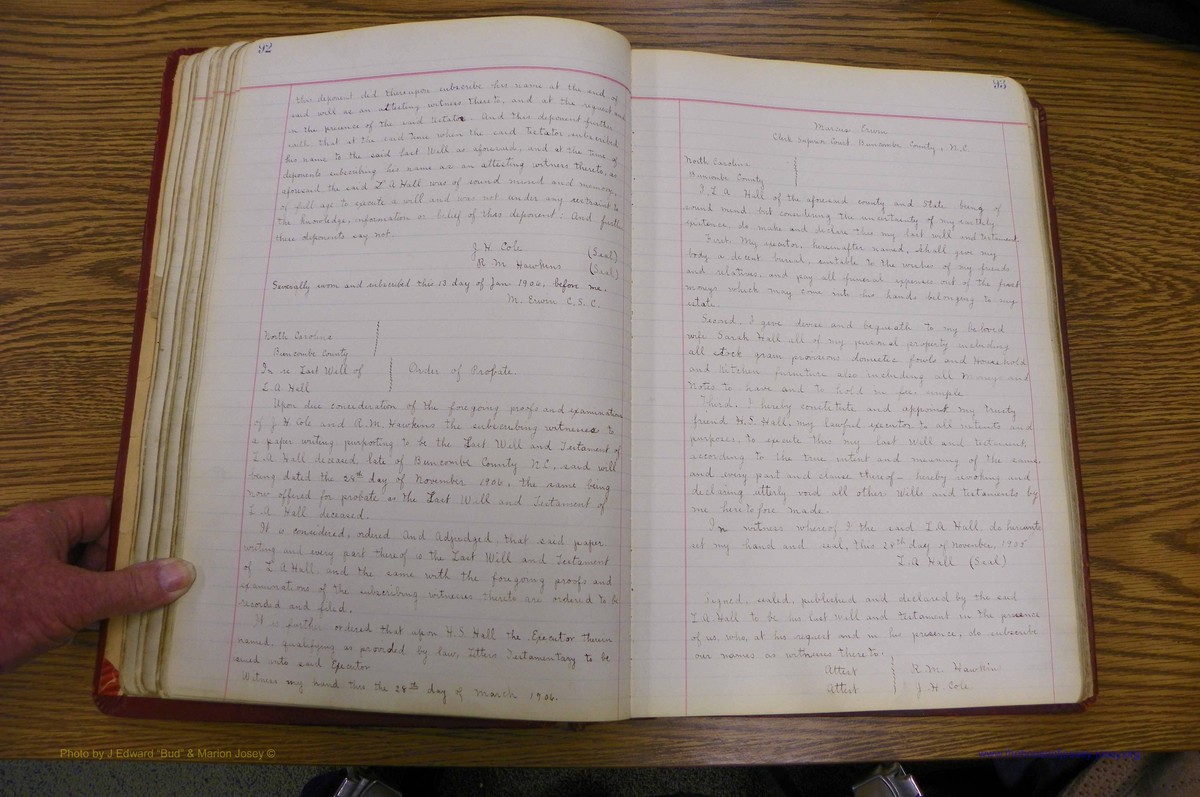 92
this deponent did thereupon subscribe his name at the end of
said will as an attesting witness thereto, and at the request and
in the presence of the said testator. And this deponent further
saith that at the said time when the said Testator subscribed
his name to the said Last Will as aforesaid, and at the time of
deponents subscribing his name as an attesting witness thereto, as
aforesaid the said L.A. Hall was of sound mind and memory,
of full age to execute a will and was not under any restraint to
the knowledge, information or belief of this deponent: And further
these deponents say not.
J. H. Cole (Seal)
R. M. Hawkins (Seal)
Severally sworn and subscribed this 13 day of Jan. 1906, before me.
M. Erwin C.S.C.
North Carolina
Buncombe County
In re Last Will of
L.A. Hall
Order of Probate
Upon due consideration of the foregoing proofs and examination
of J. H. Cole and R.M. Hawkins the subscribing witnesses to
a paper writing purporting to be the Last Will and Testament of
L.A. Hall deceased late of Buncombe County N.C., said will
being dated the 28th day of November 1906, the same being
now offered for probate as the Last Will and Testament of
L.A. Hall deceased.
It is considered, ordered And Adjudged, that said paper
writing and every part thereof is the Last Will and Testament
of L.A. Hall and the same with the foregoing proofs and
examinations of the subscribing witnesses thereto are ordered to be
recorded and filed.
It is further ordered that upon H.S. Hall the Executor therein
named, qualifying as provided by law, Letters Testamentary to be
issued unto said Executor
Witness my hand this the 28th day of March 1906.
93
Marcus Erwin
Clerk Superior Court Buncombe County, N.C.
North Carolina
Buncombe County
I, L.A. Hall of the aforesaid county and State being of
sound mind, but considering the uncertainty of my earthly
existence, do make and declare this my last will and testament
First. My executor, hereinafter named, shall give my
body a decent burial, suitable to the wishes of my friends
and relatives, and pay all funeral expenses out of the first
moneys which may come into his hands belonging to my
estate.
Second. I give devise and bequeath to my beloved
wife Sarah Hall all of my personal property including
all stock grain provisions domestic fowls and Household
and Kitchen furniture also including all Moneys and
Notes to have and to hold in fee simple
Third. I hereby constitute and appoint my trusty
friend H.S. Hall, my lawful executor to all intents and
purposes, to execute this my last will and testament
according to the true intent and meaning of the same.
and every part and clause thereof - hereby revoking and
declaring utterly void all other Wills and testaments by
me heretofore made.
In witness whereof I the said L.A. Hall, do hereunto
set my hand and seal, this 28th day of November, 1905
L.A. Hall (Seal)
Signed, sealed, published and declared by the said
L.A. Hall to be his last will and testament in the presence
of us, who, at his request and in his presence, do subscribe
our names as witnesses thereto.
Attest R.M. Hawkins
Attest J. H. Cole
Photo by J Edward "Bud" & Marion Josey ©